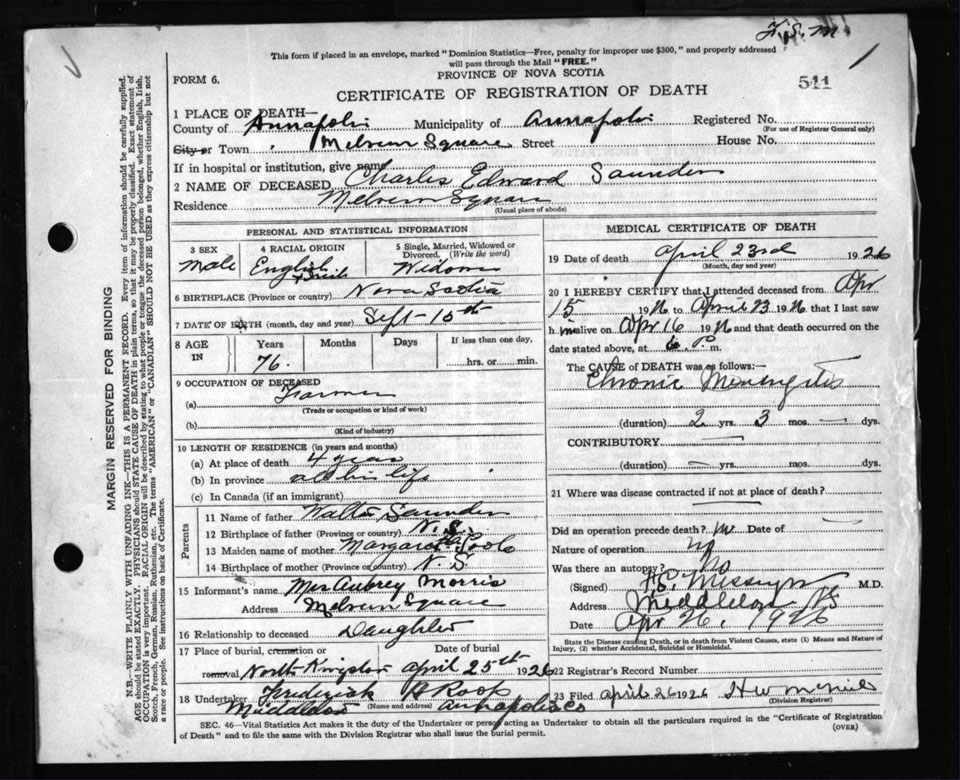 F. S. M.
This form if placed in an envelope, marked "Dominion Statistics—Free, penalty for improper use $300," and properly addressed
will pass through the Mail "FREE."
FORM 6.
PROVINCE OF NOVA SCOTIA
541
CERTIFICATE OF REGISTRATION OF DEATH
1 PLACE OF DEATH—
County of Annapolis Municipality of Annapolis Registered No.
(For use of Registrar General only)
City or Town Melvern Square Street House No.
If in hospital or institution, give name
2 NAME OF DECEASED Charles Edward Saunders
Residence Melvern Square
(Usual place of abode)
PERSONAL AND STATISTICAL INFORMATION
3 SEX 4 RACIAL ORIGIN 5 Single, Married, Widowed or Divorced. (Write the word)
Male English Widower
6 BIRTHPLACE (Province or country) Nova Scotia
7 DATE OF BIRTH (month, day and year) Sept 15th
8 AGE IN Years Months Days If less than one day,
76. hrs. or min.
9 OCCUPATION OF DECEASED
(a) Farmer
(Trade or occupation or kind of work)
(b)
(Kind of industry)
10 LENGTH OF RESIDENCE (in years and months)
(a) At place of death 4 years
(b) In province all his life
(c) In Canada (if an immigrant)
Parents
11 Name of father Walter Saunders
12 Birthplace of father (Province or country) N. S.
13 Maiden name of mother Margaret
14 Birthplace of mother (Province or country) N. S.
15 Informant's name Mrs Aubrey Morris
Address Melvern Square
16 Relationship to deceased Daughter
17 Place of burial, cremation or removal Date of burial
North Kingston April 25th 1926
18 Undertaker Frederick A Roop
Middleton (Name and address) Annapolis Co
MEDICAL CERTIFICATE OF DEATH
19 Date of death April 23rd 1926
(Month, day and year)
20 I HEREBY CERTIFY that I attended deceased from Apr
15 1926 to April 23 1926 that I last saw
h im alive on Apr 16 1926 and that death occurred on the
date stated above, at 6 P. m.
The CAUSE of DEATH was as follows:—
Chronic Meningitis
(duration) 2 yrs. 3 mos. — dys.
CONTRIBUTORY —
(duration) — yrs. — mos. dys.
21 Where was disease contracted if not at place of death?
Did an operation precede death? no Date of —
Nature of operation
Was there an autopsy? No
(Signed) M.D.
Address Middleton NS
Date Apr 26, 1926
State the Disease causing Death, or in Death from Violent Causes, state (1) Means and Nature of
Injury, (2) whether Accidental, Suicidal or Homicidal.
22 Registrar's Record Number
23 Filed April 26 1926 H W
(Division Registrar)
SEC. 46—Vital Statistics Act makes it the duty of the Undertaker or person acting as Undertaker to obtain all the particulars required in the "Certificate of Registration
of Death" and to file the same with the Division Registrar who shall issue the burial permit.
(OVER)
MARGIN RESERVED FOR BINDING
N.B.—WRITE PLAINLY WITH UNFADING INK—THIS IS A PERMANENT RECORD. Every item of information should be carefully supplied.
AGE should be stated EXACTLY. PHYSICIANS should STATE CAUSE OF DEATH in plain terms, so that it may be properly classified. Exact statement of
OCCUPATION is very important. RACIAL ORIGIN will be described by stating to what people or tongue the deceased person belonged, whether English, Irish,
Scotch, French, German, Russian, Ruthenian, etc. The terms "AMERICAN" or "CANADIAN" SHOULD NOT BE USED as they express citizenship but not
a race or people. See instructions on back of Certificate.